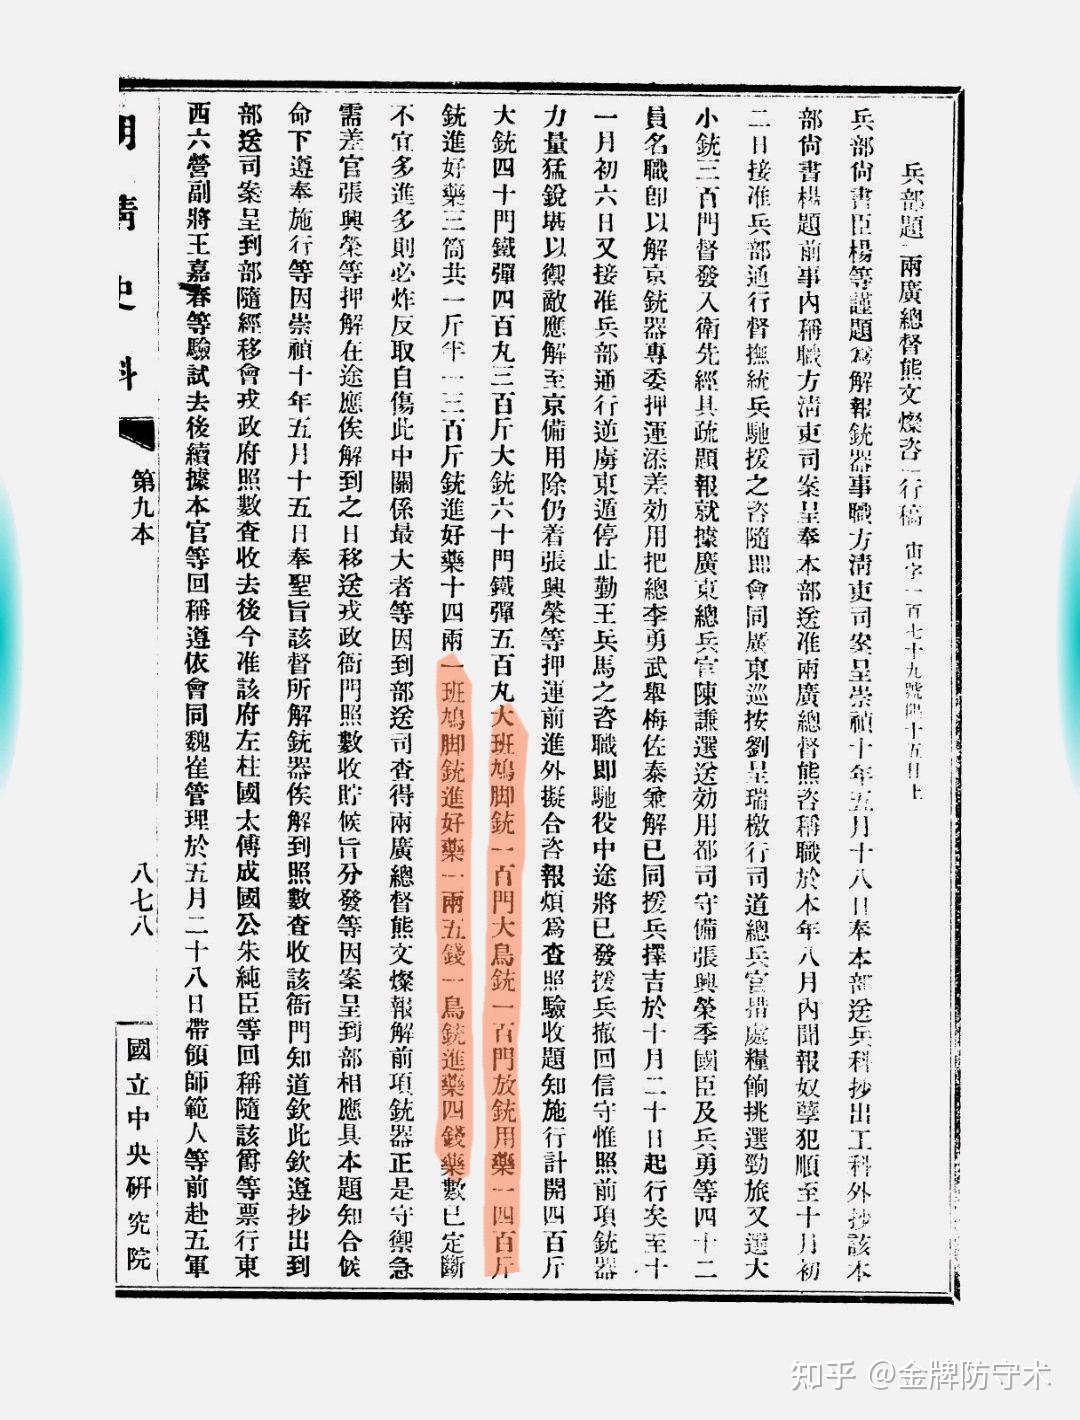 兵部題兩廣總督熊文燦咨行稿 宙字一百七十九號 十五日上
兵部尙書臣楊等謹題爲解報銃器事職方淸吏司案呈崇禎十年五月十八日奉本部送兵科抄出工科外抄該本
部尙書楊題前事內稱職方淸吏司案呈奉本部送准兩廣總督熊咨稱職於本年八月內聞報奴孽犯順至十月初
二日接准兵部通行督撫統兵馳援之咨隨即會同廣東巡按劉呈瑞檄行司道總兵官措處糧餉挑選勁旅又選大
小銃三百門督發入衛先經具疏題報就據廣東總兵官陳謙選送効用都司守備張興榮季國臣及兵勇等四十二
員名職卽以解京銃器專委押運添差効用把總李勇武舉梅佐泰兼解已同援兵擇吉於十月二十日起行矣至十
一月初六日又接准兵部通行逆虜東遁停止勤王兵馬之咨職即馳役中途將已發援兵撤回信守惟照前項銃器
力量猛銳堪以禦敵應解至京備用除仍着張興榮等押運前進外擬合咨報煩爲査照驗收題知施行計開四百斤
大銃四十門鐵彈四百九三百斤大銃六十門鐵彈五百丸大班鳩脚銃一百門大鳥銃一百門放銃用藥一四百斤
銃進好藥三筒共一斤半一三百斤銃進好藥十四兩一班鳩脚銃進好藥一兩五錢一鳥銃進藥四錢藥數已定斷
不宜多進多則必炸反取自傷此中關係最大者等因到部送司查得兩廣總督熊文燦報解前項銃器正是守禦急
需差官張興榮等押解在途應俟解到之日移送戎政衙門照數收貯候旨分發等因案呈到部相應具本題知合候
命下遵奉施行等因崇禎十年五月十五日奉聖旨該督所解銃器俟解到照數査收該衙門知道欽此欽遵抄出到
部送司案呈到部隨經移會戎政府照數查收去後今准該府左柱國太傅成國公朱純臣等回稱隨該爵等票行東
西六營副將王嘉春等驗試去後續據本官等回稱遵依會同魏崔管理於五月二十八日帶領師範人等前赴五軍
明淸史料 第九本 八七八 國立中央硏究院
知乎 @金牌防守术